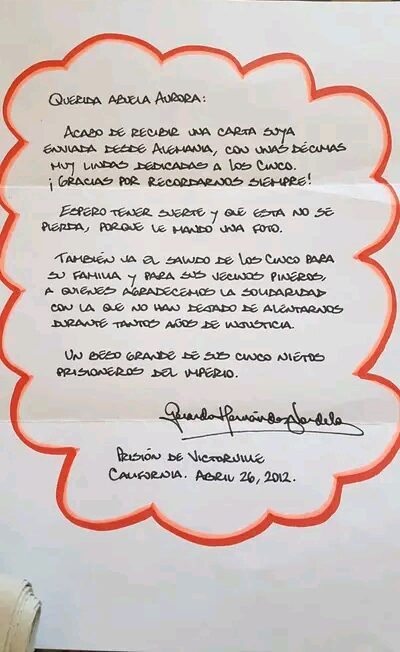 QUERIDA ABUELA AURORA:
ACABO DE RECIBIR UNA CARTA SUYA
ENVIADA DESDE ALEMANIA, CON UNAS DÉCIMAS
MUY LINDAS DEDICADAS A LOS CINCO.
¡GRACIAS POR RECORDARNOS SIEMPRE!
ESPERO TENER SUERTE Y QUE ESTA NO SE
PIERDA, PORQUE LE MANDO UNA FOTO.
TAMBIÉN VA EL SALUDO DE LOS CINCO PARA
SU FAMILIA Y PARA SUS VECINOS PINEROS,
A QUIENES AGRADECEMOS LA SOLIDARIDAD
CON LA QUE NO HAN DEJADO DE ALENTARNOS
DURANTE TANTOS AÑOS DE INJUSTICIA.
UN BESO GRANDE DE SUS CINCO NIETOS
PRISIONEROS DEL IMPERIO.
Gerardo Hernández Nordelo
PRISIÓN DE VICTORVILLE
CALIFORNIA. ABRIL 26, 2012.